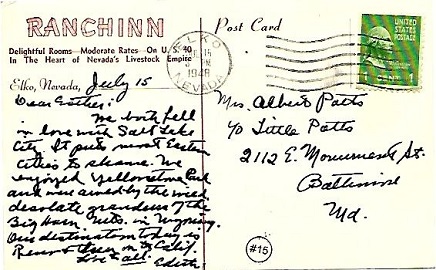 RANCHINN
Delightful Rooms Moderate Rates On U. S. 40
In The Heart of Nevada's Livestock Empire
Elko, Nevada, July 15
Dear Esther:
We both fell
in love with Salt Lake
City. It puts most Eastern
cities to shame. We
enjoyed Yellowstone Park
and were awed by the weird
desolate grandeur of the
Big Horn Mts. in Wyoming.
Our destination today is
Reno & then on to Calif.
Love to all. Edith
Post Card
ELKO
JUL 15
PM
1948
NEVADA
UNITED
STATES
POSTAGE
1 1
Mrs. Albert Potts
c/o Little Potts
2112 E. Monument St.
Baltimore
Md.
#15